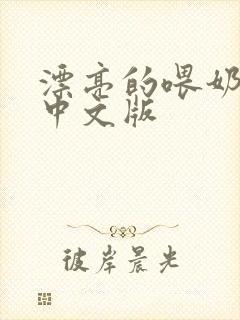 漂亮的喂奶
中文版
彼岸晨光